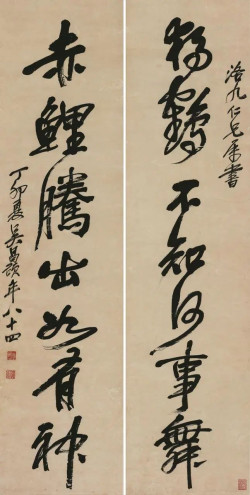 九仁兄屬書
獨鶴不知何事舞
赤鯉騰出如有神
丁卯夏吳昌碩年八十四